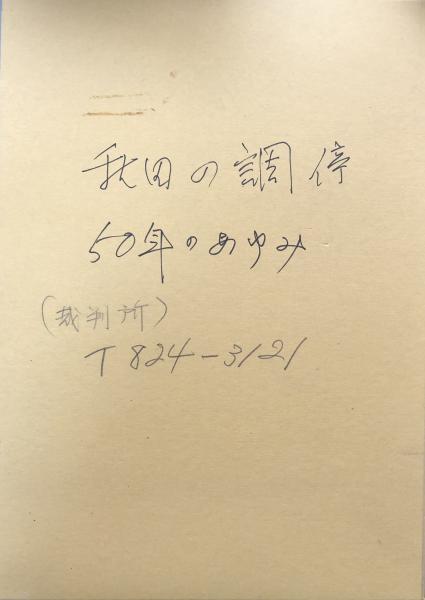 秋田の調停
50年のあゆみ
(裁判所)
T 824-3121